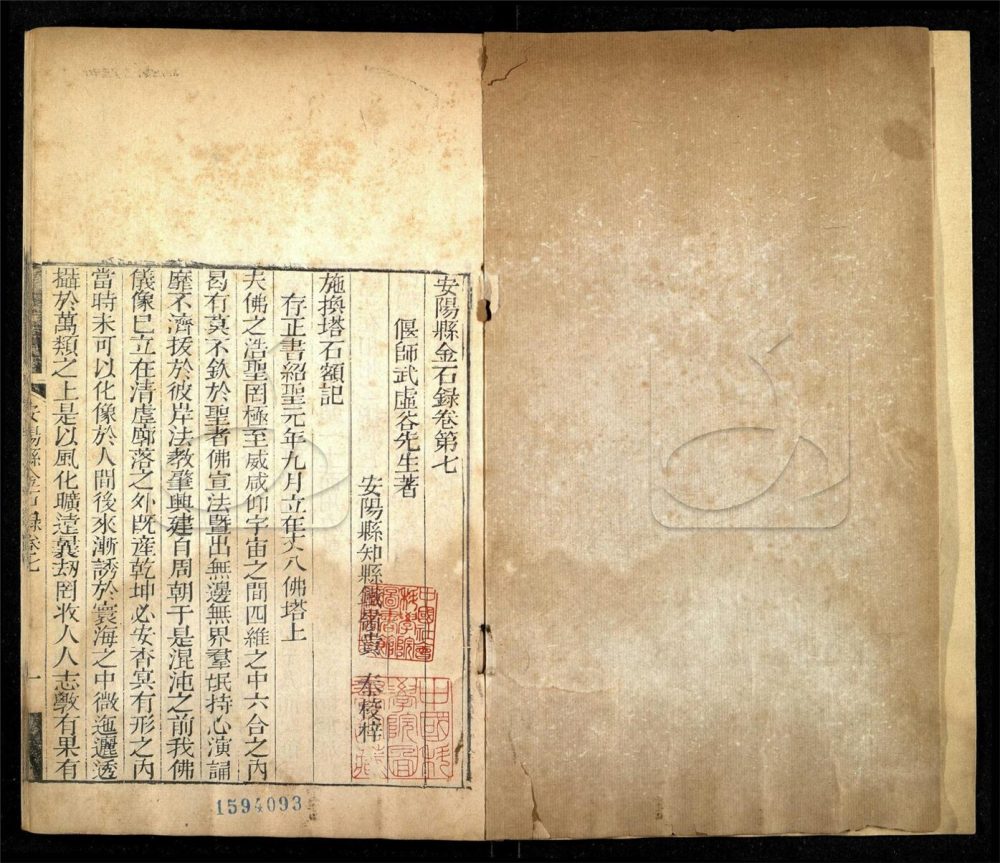 安陽縣金石録卷第七
偃師武虛谷先生著
安陽縣知縣鐵嶺貴 泰校梓
施換塔石額記
存正書紹聖元年九月立在丈八佛塔上
夫佛之浩聖罔極至威咸仰宇宙之間四維之中六合之内
曷有莫不欽於聖者佛宣法曁出無邊無界羣氓持心演誦
靡不濟拔於彼岸法教肇興建自周朝于是混沌之前我佛
儀像已立在清虛廓落之外既産乾坤必安杳冥有形之内
當時未可以化像於人間後來漸誘於寰海之中微迤邐透
攝於萬類之上是以風化曠遠曩劫罔收人人志斅有果有
安陽縣金石録卷七
一
中國社會科學院圖書館
中國科學院圖
1594093